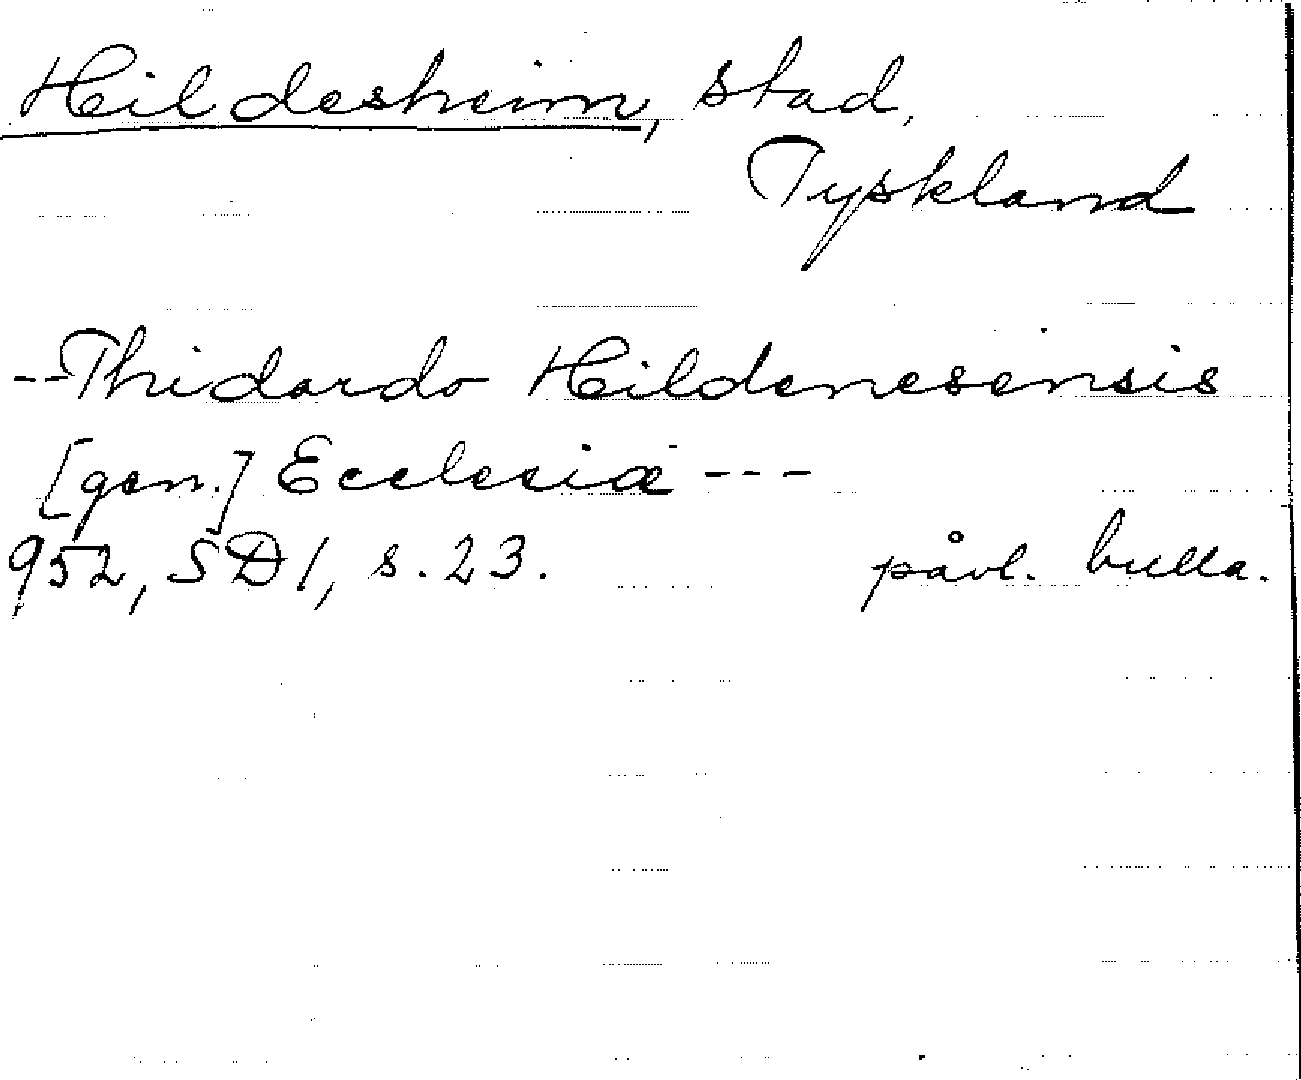 Hildesheim, stad,
Tyskland
--Thidardo Hildenesensis
[gen.] Ecclesiæ ---
952, SD1, s. 23. påvl. bulla.